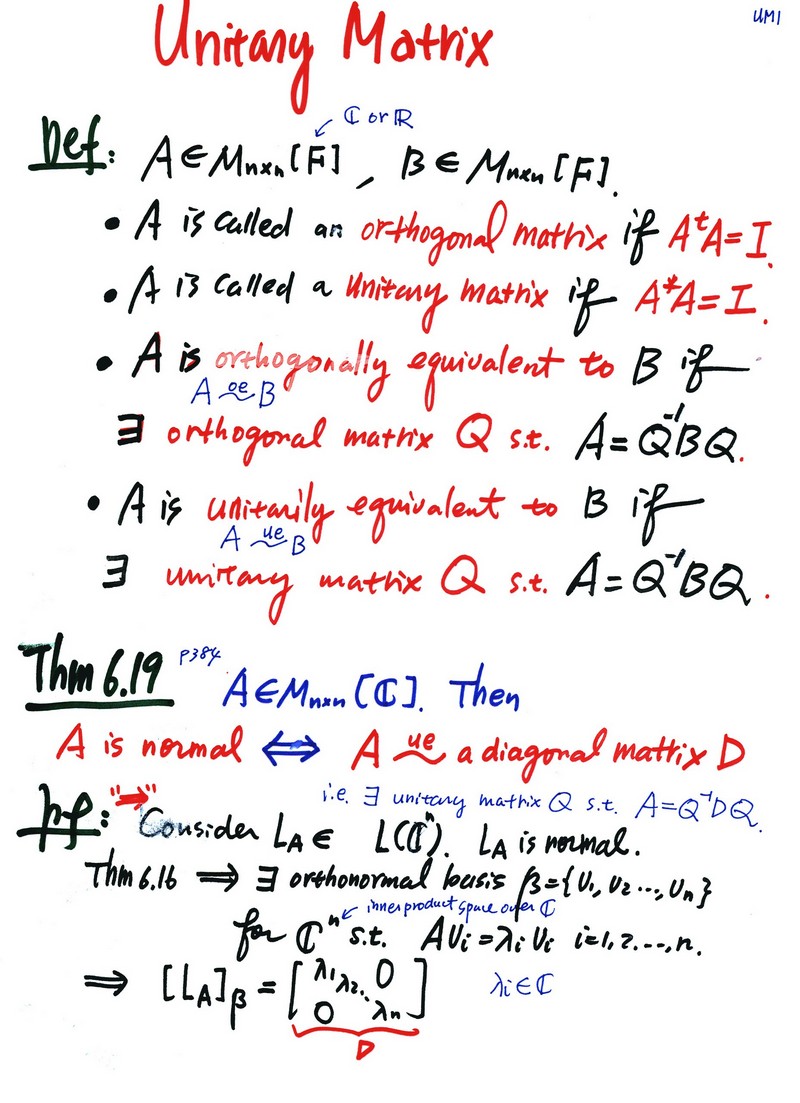 UM1
Unitary Matrix
↙ ℂ or ℝ
Def: A ∈ Mₙₓₙ[F], B ∈ Mₙₓₙ[F].
• A is called an orthogonal matrix if AᵗA = I.
• A is called a Unitary matrix if A*A = I.
• A is orthogonally equivalent to B if
A ~ᵒᵉ B
∃ orthogonal matrix Q s.t. A = Q⁻¹BQ.
• A is unitarily equivalent to B if
A ~ᵘᵉ B
∃ unitary matrix Q s.t. A = Q⁻¹BQ.
Thm 6.19 P384 A ∈ Mₙₓₙ[ℂ]. Then
A is normal ⟺ A ~ᵘᵉ a diagonal matrix D
i.e. ∃ unitary matrix Q s.t. A = Q⁻¹DQ.
pf: "⇒" Consider L_A ∈ L(ℂⁿ). L_A is normal.
Thm 6.16 ⟹ ∃ orthonormal basis β = {v₁, v₂ ..., vₙ}
↙ inner product space over ℂ
for ℂⁿ s.t. Avᵢ = λᵢvᵢ i = 1, 2, ..., n.
⟹ [L_A]_β = [λ₁ λ₂ ⋱ 0 λᵢ ∈ ℂ
0 λₙ]
D